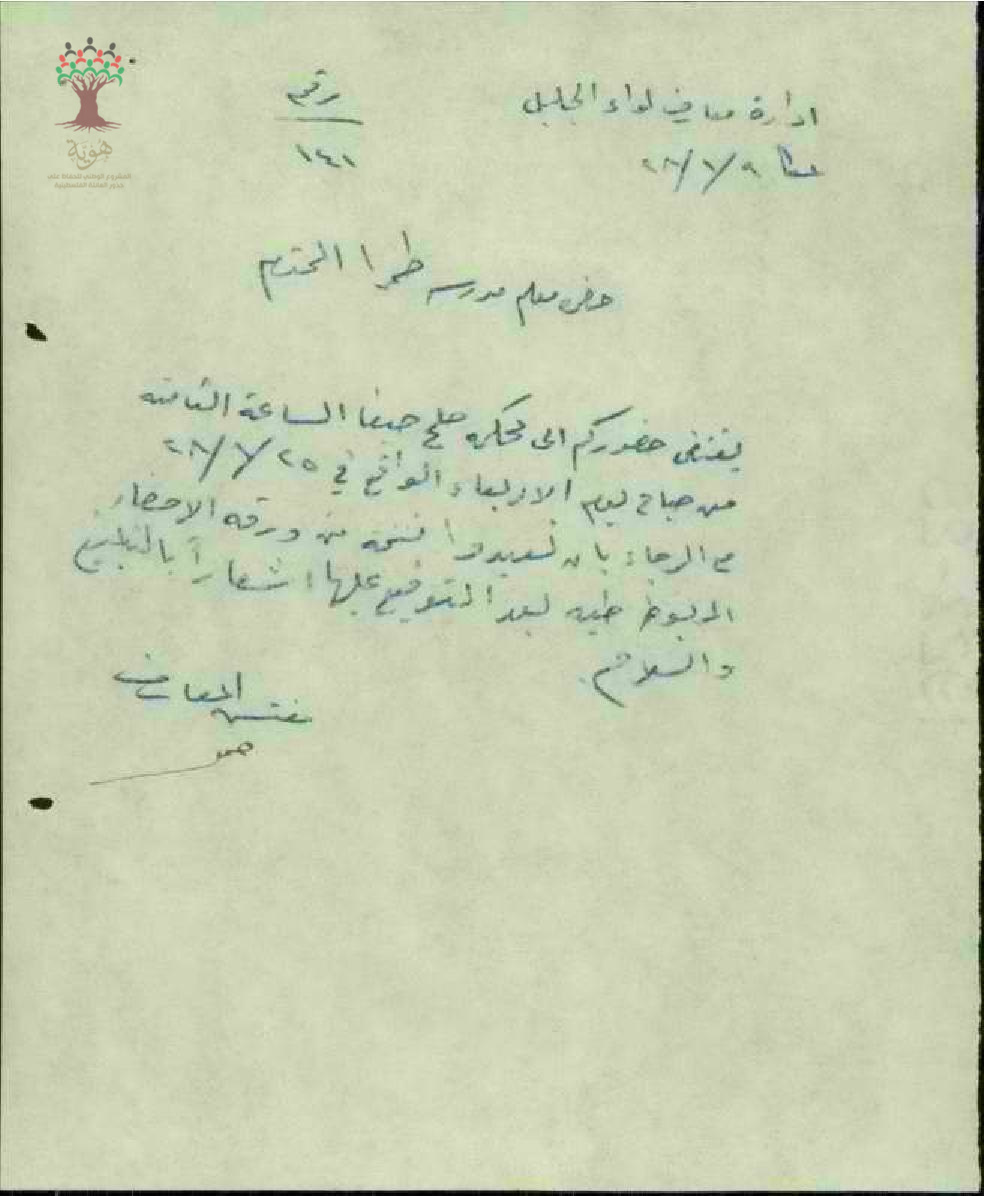 هوية
المشروع الوطني للحفاظ على
جذور العائلة الفلسطينية
ادارة معارف لواء الجليل
رقم
١٤١
عكا ٩/٧/٢٨
حضرة معلم مدرسة طمرا المحترم
يقتضي حضوركم الى محكمة صلح حيفا الساعة الثامنة
من صباح يوم الاربعاء الواقع في ٢٥/٧/٢٨
مع الرجاء بان تعيدوا نسخة من ورقة الاحضار
المربوط طيه بعد التوقيع عليها اشعاراً بالتبليغ
والسلام
مفتش المعارف